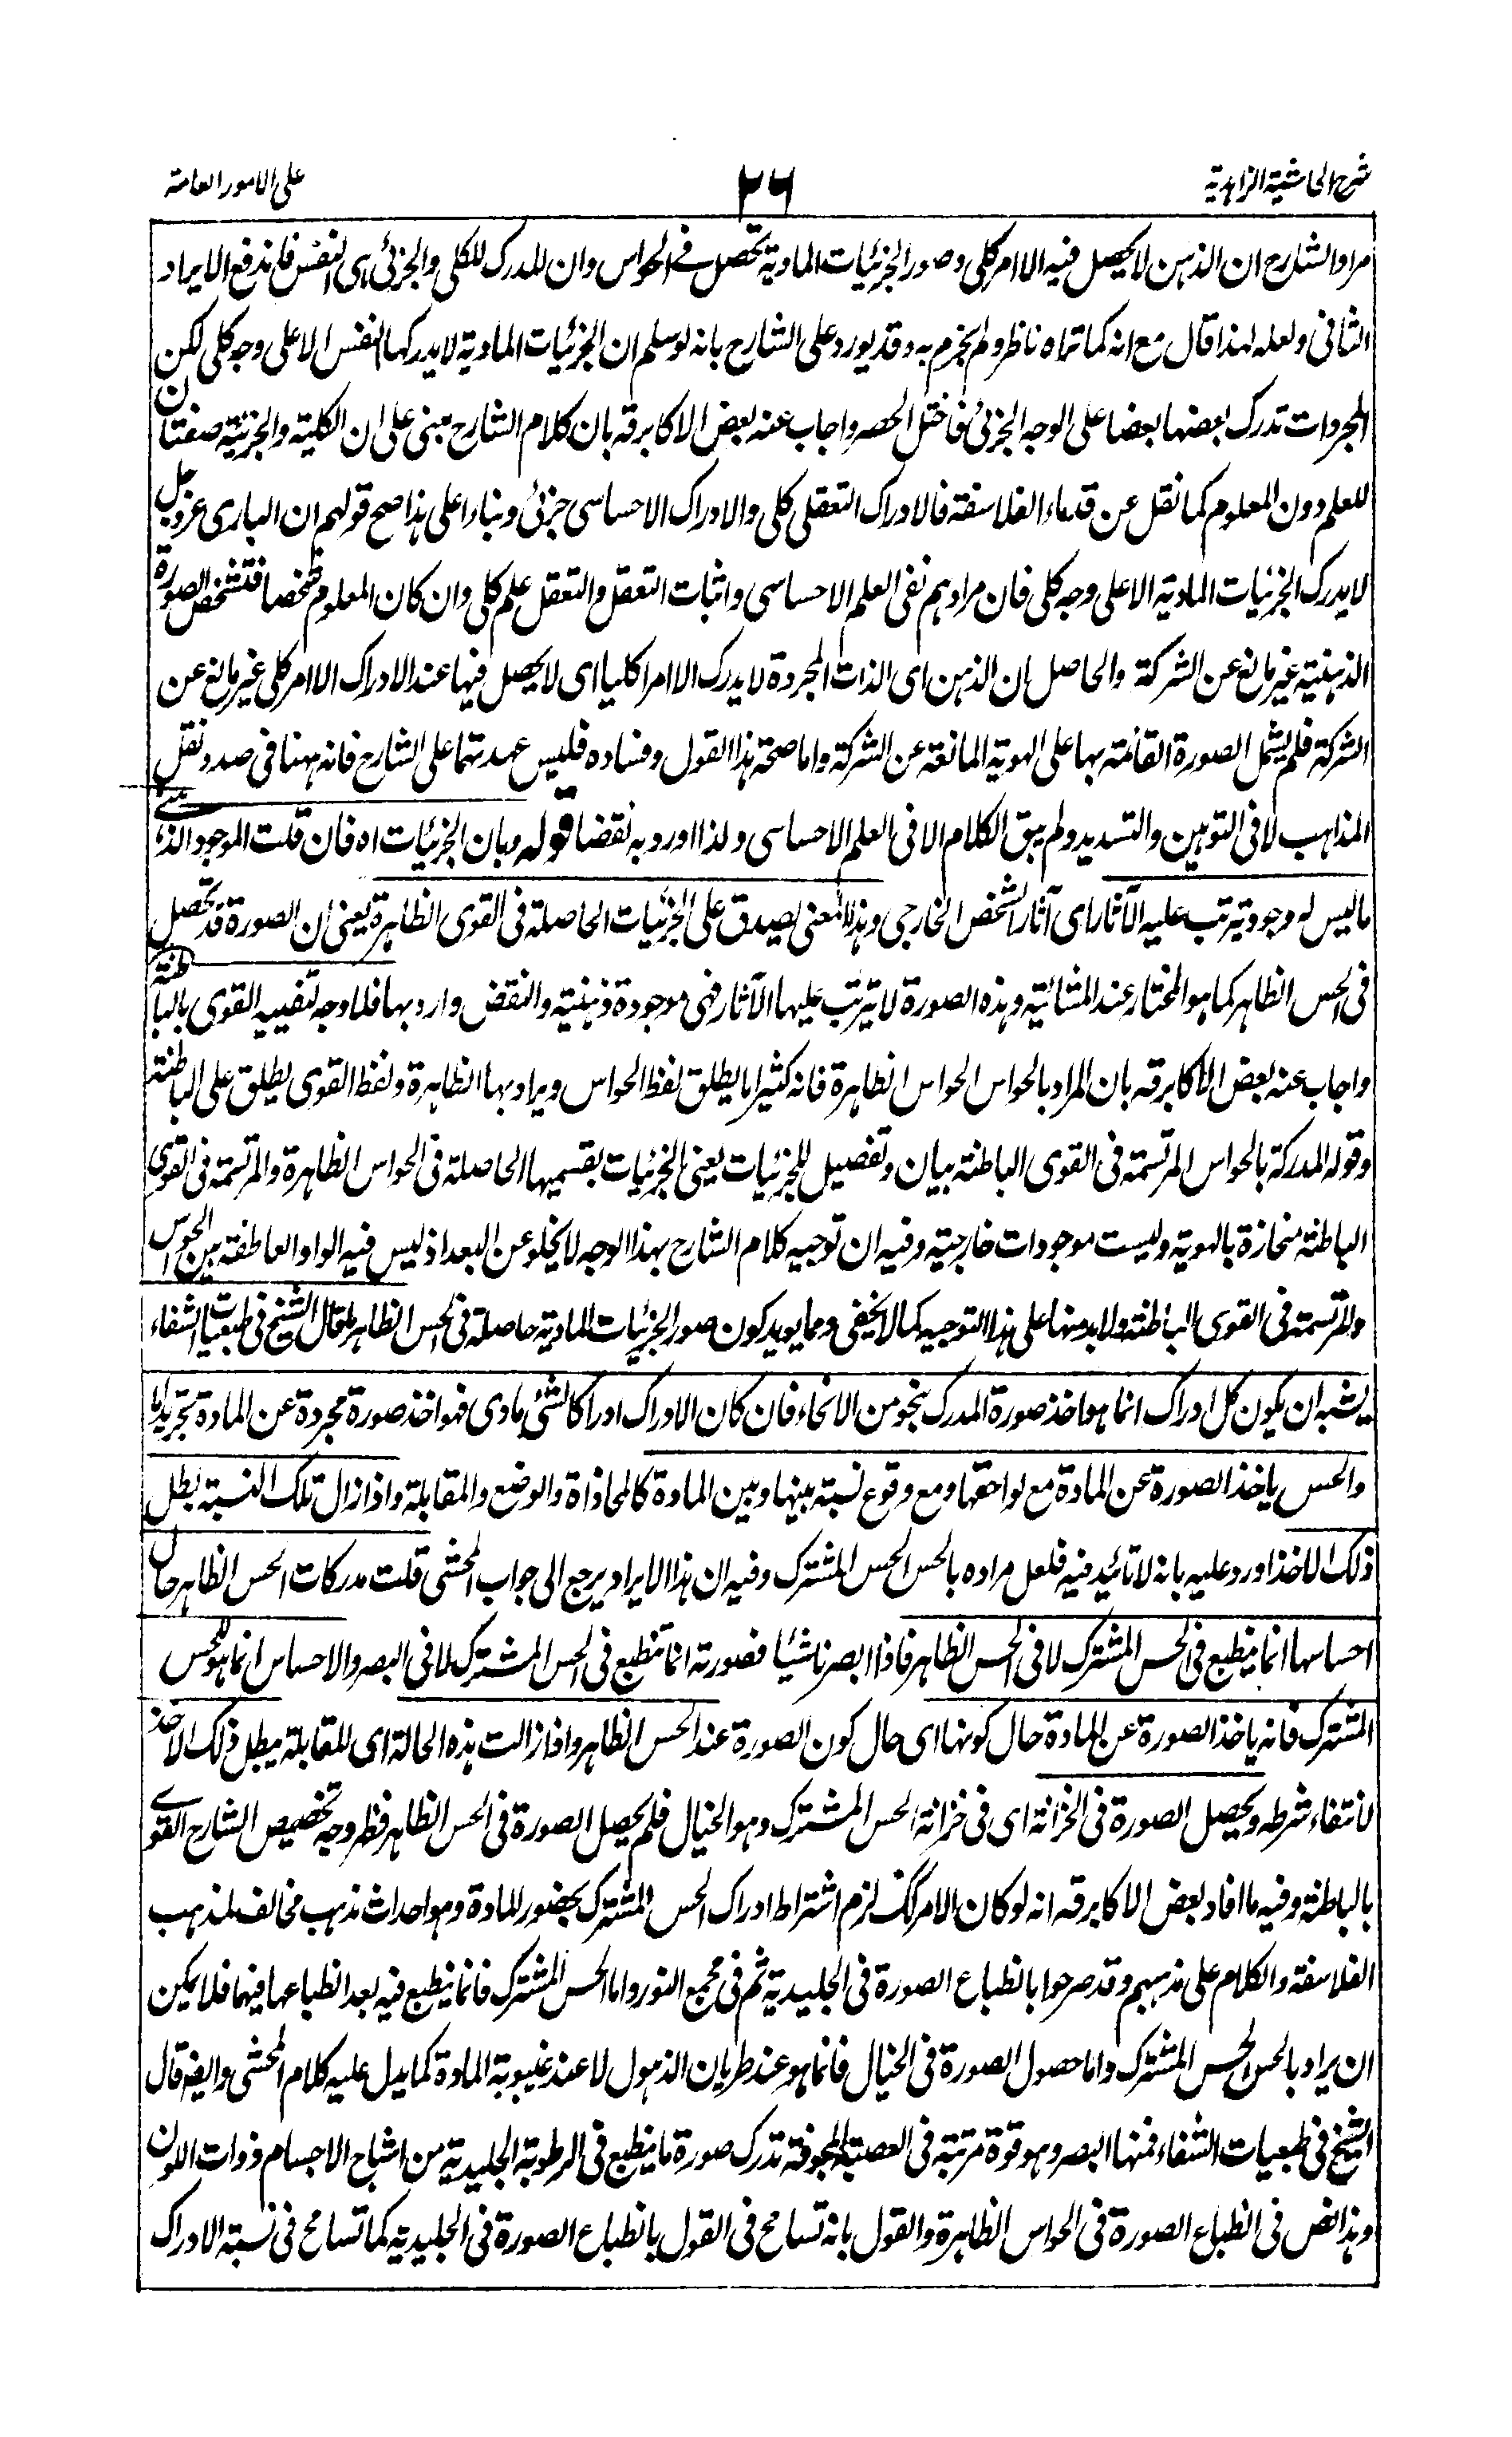 شرح الحاشية الزاهدية
٢٦
على الامور العامة
مراد الشارح ان الذهن لا يحصل فيه الا امر كلى وصور الجزئيات المادية تحصل فے الحواس وان المدرك للكلى والجزئى هى النفس فاندفع الايراد
الثانى ولعله لهذا قال مع انه كما تراه ناظر ولم يجزم به وقد يورد على الشارح بانه لو سلم ان الجزئيات المادية لا يدركها النفس الا على وجه كلى لكن
المجردات تدرك بعضها بعضا على الوجه الجزئى فاختل الحصر واجاب عنه بعض الاكابر قه بان كلام الشارح مبنى على ان الكلية والجزئية صفتان
للعلم دون المعلوم كما نقل عن قدماء الفلاسفة فالادراك التعقلى كلى والادراك الاحساسى جزئى وبناءا على هذا صح قولهم ان البارى عزوجل
لا يدرك الجزئيات المادية الا على وجه كلى فان مرادهم نفى العلم الاحساسى واثبات التعقل والتعقل علم كلى وان كان المعلوم شخصا فتشخص الصورة
الذهنية غير مانع عن الشركة والحاصل ان الذهن اى الذات المجردة لا يدرك الا امرا كليا اى لا يحصل فيها عند الادراك الا امر كلى غير مانع عن
الشركة فلم يشمل الصورة القائمة بها على الهوية المانعة عن الشركة واما صحة هذا القول وفساده فليس عهدتهما على الشارح فانه ههنا فى صدد نقل
المذاهب لا فى التوهين والتسديد ولم يبق الكلام الا فى العلم الاحساسى ولذا اورد به نقضا قوله وبان الجزئيات اه فان قلت الموجود الذهنے
ما ليس له وجود يترتب عليه الآثار اى آثار الشخص الخارجى وهذا المعنى يصدق على الجزئيات الحاصلة فى القوى الظاهرة يعنى ان الصورة قد تحصل
فى الحس الظاهر كما هو المختار عند المشائية وهذه الصورة لا يترتب عليها الآثار فهى موجودة ذهنية والنقض وارد بها فلا وجه لتقييد القوى بالباطنة
واجاب عنه بعض الاكابر قه بان المراد بالحواس الحواس الظاهرة فانه كثيرا ما يطلق لفظ الحواس ويراد بها الظاهرة ولفظ القوى يطلق على الباطنة
وقوله المدركة بالحواس المرتسمة فى القوى الباطنة بيان وتفصيل للجزئيات يعنى الجزئيات بقسميها الحاصلة فى الحواس الظاهرة والمرتسمة فى القوى
الباطنة منحازة بالهوية وليست موجودات خارجية وفيه ان توجيه كلام الشارح بهذا الوجه لا يخلو عن البعد اذ ليس فيه الواو العاطفة بين الحواس
والمرتسمة فى القوى الباطنة ولا بد منها على هذا التوجيه كما لا يخفى ومما يويد كون صور الجزئيات المادية حاصلة فى الحس الظاهر ما قال الشيخ فى طبعيات الشفاء
يشبه ان يكون كل ادراك انما هو اخذ صورة المدرك بنحو من الانحاء فان كان الادراك ادراكا لشئ مادى فهو اخذ صورة مجردة عن المادة تجريدا ما
والحس ياخذ الصورة عن المادة مع لواحقها ومع وقوع نسبة بينها وبين المادة كالمحاذاة والوضع والمقابلة واذا زال تلك النسبة بطل
ذلك الاخذ اورد عليه بانه لا تائيد فيه فلعل مراده بالحس الحس المشترك وفيه ان هذا الايراد يرجع الى جواب المحشى قلت مدركات الحس الظاهر حال
احساسها انما ينطبع فى الحس المشترك لا فى الحس الظاهر فاذا ابصرنا شيئا فصورته انما تنطبع فى الحس المشترك لا فى البصر والاحساس انما هو للحس
المشترك فانه ياخذ الصورة عن المادة حال كونها اى حال كون الصورة عند الحس الظاهر واذا زالت هذه الحالة اى المقابلة يبطل ذلك الاخذ
لانتفاء شرطه ويحصل الصورة فى الخزانة اى فى خزانة الحس المشترك وهو الخيال فلم يحصل الصورة فى الحس الظاهر فظهر وجه تخصيص الشارح القوے
بالباطنة وفيه ما افاد بعض الاكابر قه انه لو كان الامر كك لزم اشتراط ادراك الحس المشترك بحضور المادة وهو احداث مذهب مخالف لمذهب
الفلاسفة والكلام على مذهبهم وقد صرحوا بانطباع الصورة فى الجليدية ثم فى مجمع النور واما الحس المشترك فانما ينطبع فيه بعد انطباعها فيهما فلا يمكن
ان يراد بالحس الحس المشترك واما حصول الصورة فى الخيال فانما هو عند طريان الذهول لا عند غيبوبة المادة كما يدل عليه كلام المحشى وايضا قال
الشيخ فى طبعيات الشفاء فمنها البصر وهو قوة مرتبة فى العصبة المجوفة تدرك صورة ما ينطبع فى الرطوبة الجليدية من اشباح الاجسام ذوات اللون
وهذا نص فى انطباع الصورة فى الحواس الظاهرة والقول بانه تسامح فى القول بانطباع الصورة فى الجليدية كما تسامح فى نسبة الادراك